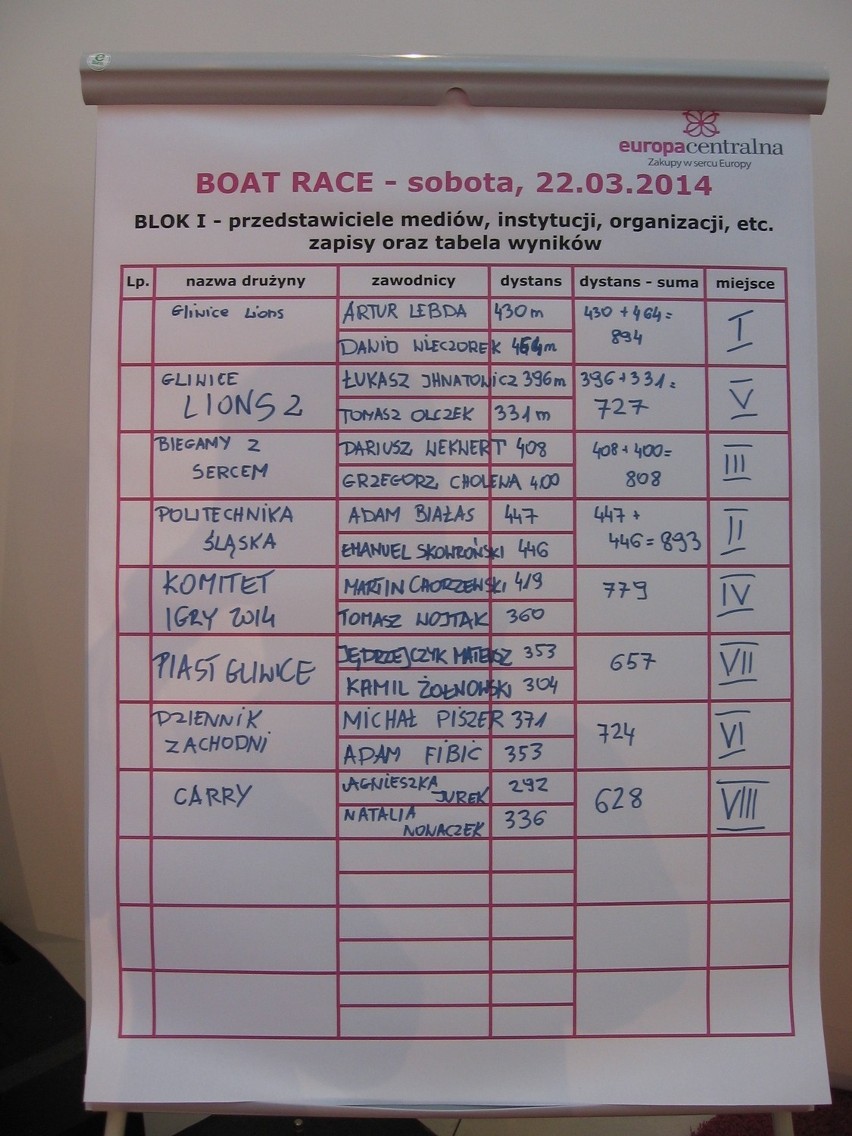 europacentralna
Zakupy w sercu Europy
BOAT RACE - sobota, 22.03.2014
BLOK I - przedstawiciele mediów, instytucji, organizacji, etc.
zapisy oraz tabela wyników
Lp. nazwa drużyny zawodnicy dystans dystans - suma miejsce
Gliwice Lions ARTUR LEBDA 430m 430 + 464 = 894 I
DAWID WIECZOREK 464m
GLIWICE LIONS 2 ŁUKASZ IHNATOWICZ 396m 396 + 331 = 727 V
TOMASZ OLCZEK 331m
BIEGAMY Z SERCEM DARIUSZ WEKWERT 408 408 + 400 = 808 III
GRZEGORZ CHOLEWA 400
POLITECHNIKA ŚLĄSKA ADAM BIAŁAS 447 447 + 446 = 893 II
EMANUEL SKOWROŃSKI 446
KOMITET IGRY 2014 MARTIN CHORZEWSKI 419 779 IV
TOMASZ WOJTAK 360
PIAST GLIWICE JĘDRZEJCZYK MATEUSZ 353 657 VII
KAMIL ŻOŁNOWSKI 304
DZIENNIK ZACHODNI MICHAŁ PISZER 371 724 VI
ADAM FIBIC 353
CARRY AGNIESZKA JUREK 292 628 VIII
NATALIA NOWACZEK 336